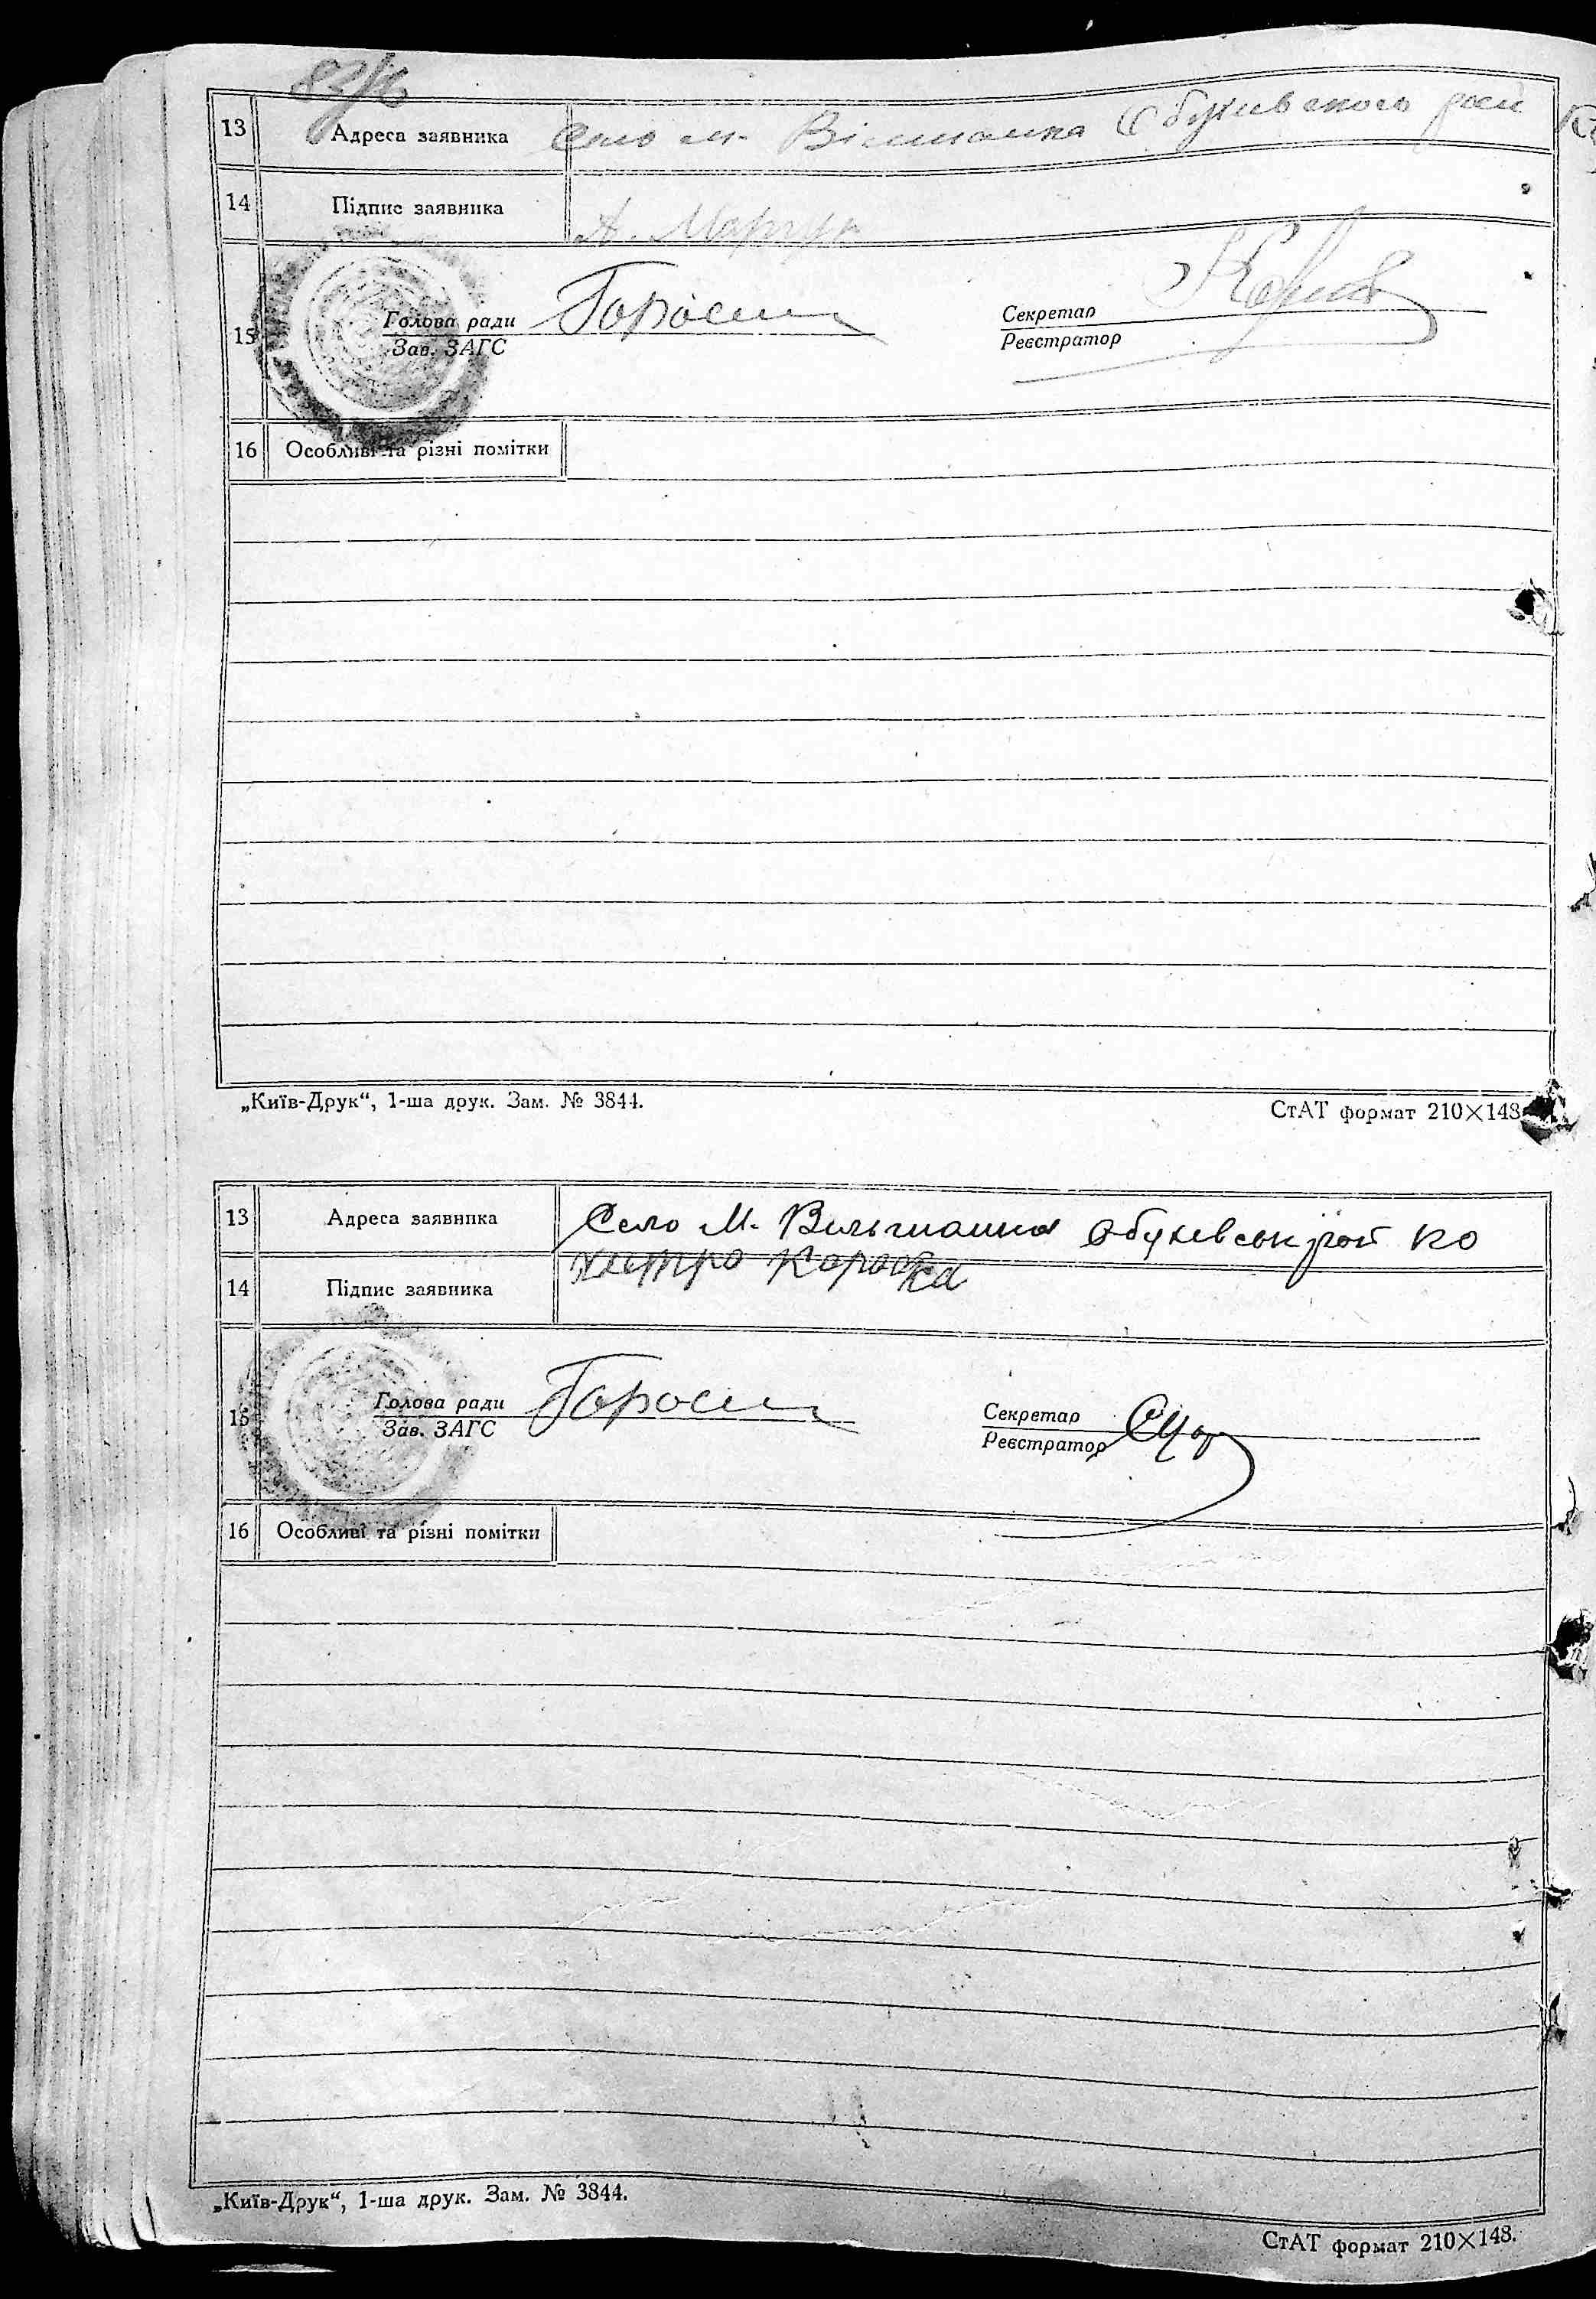 13 Адреса заявника село м. Вільшанка Обухівського рай
14 Підпис заявника А. Марчук
15 Голова ради Секретар
Зав. ЗАГС Реєстратор
16 Особливі та різні помітки
„Київ-Друк“, 1-ша друк. Зам. № 3844.
СтАТ формат 210×148
13 Адреса заявника Село М. Вільшанка Обухівськ рай КО
14 Підпис заявника
15 Голова ради Секретар
Зав. ЗАГС Реєстратор
16 Особливі та різні помітки
„Київ-Друк“, 1-ша друк. Зам. № 3844.
СтАТ формат 210×148.